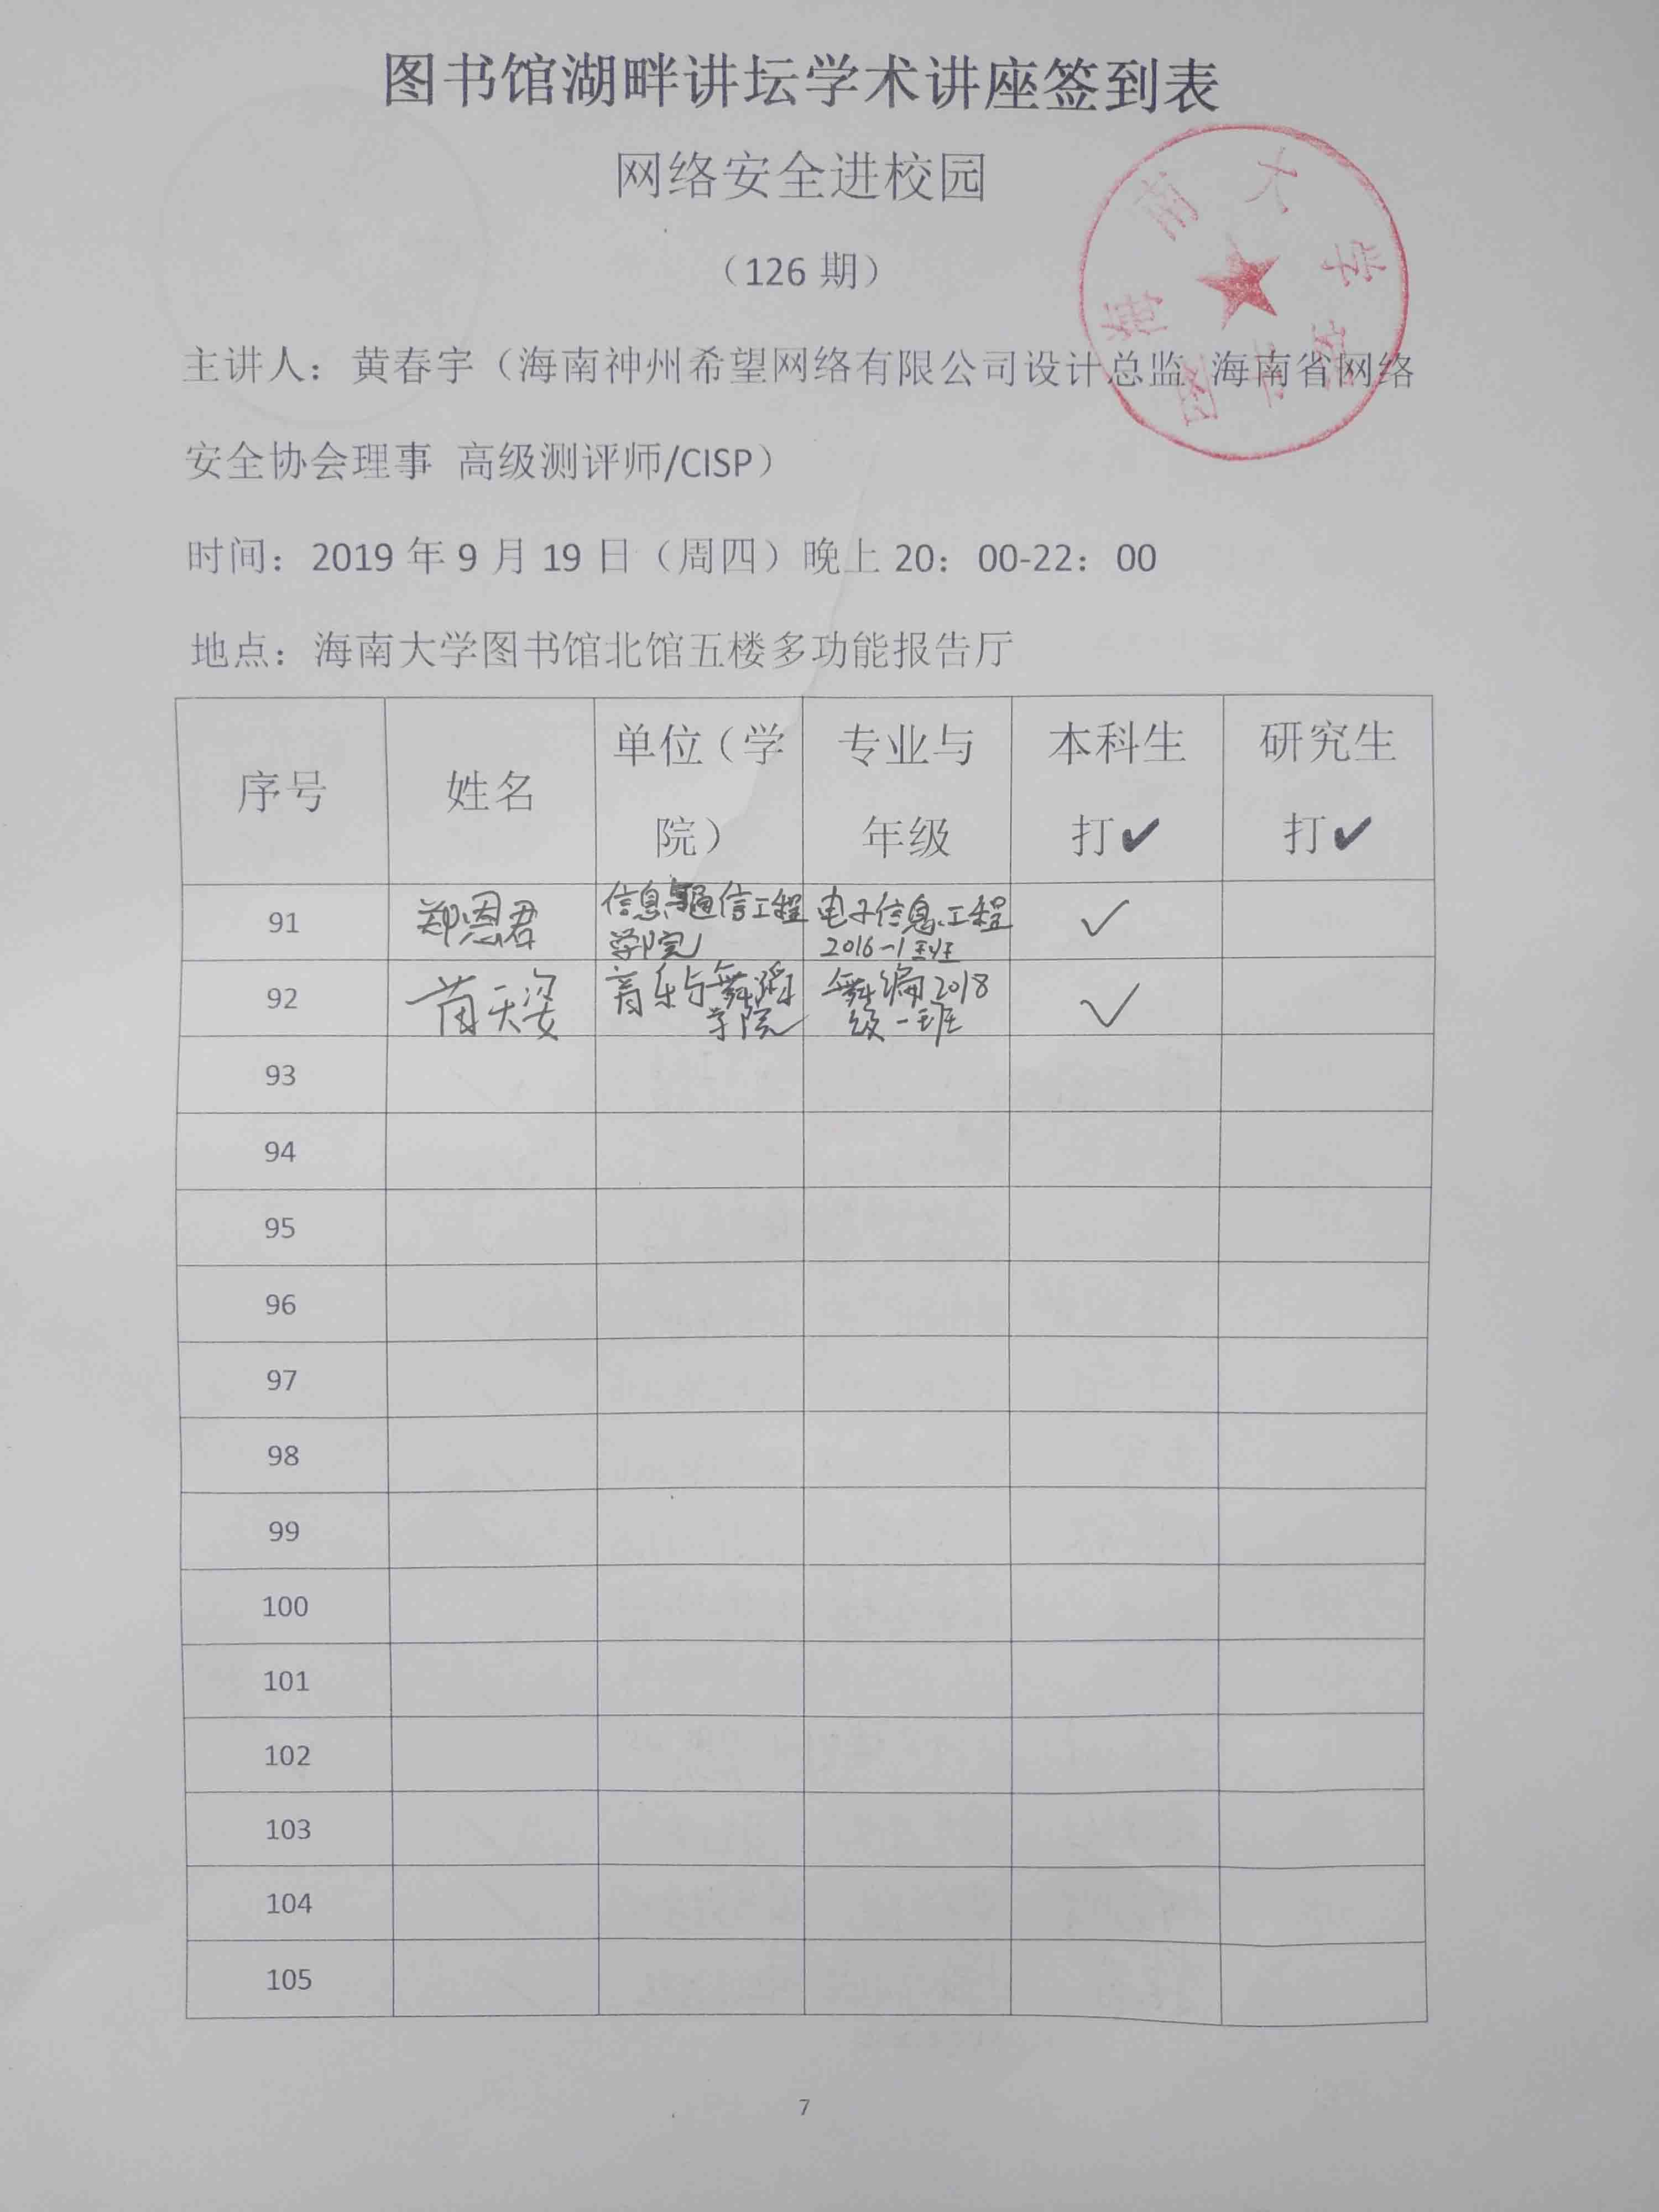 图书馆湖畔讲坛学术讲座签到表
网络安全进校园
（126 期）
海南大学
图书馆
主讲人：黄春宇（海南神州希望网络有限公司设计总监 海南省网络
安全协会理事 高级测评师/CISP）
时间：2019 年 9 月 19 日（周四）晚上 20：00-22：00
地点：海南大学图书馆北馆五楼多功能报告厅
序号 姓名 单位（学院） 专业与年级 本科生打✔ 研究生打✔
91 郑恩君 信息与通信工程学院 电子信息工程2016-1班 ✓
92 天姿 音乐与舞蹈学院 舞编2018级一班 ✓
93
94
95
96
97
98
99
100
101
102
103
104
105
7